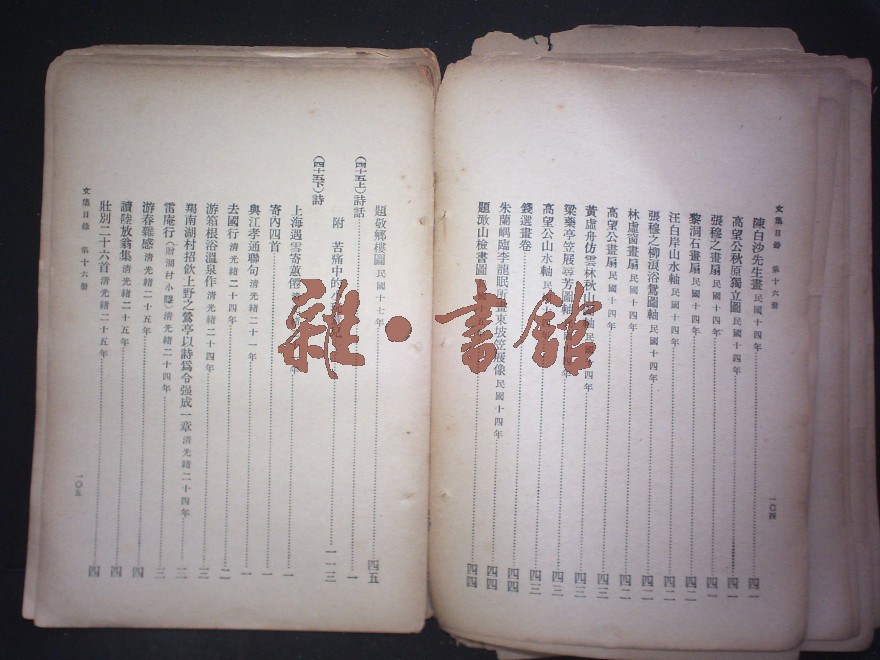 文集目錄 第十六册
一〇四
陳白沙先生畫 民國十四年 四一
高望公秋原獨立圖 民國十四年 四一
張穆之畫扇 民國十四年 四一
黎洞石畫扇 民國十四年 四二
汪白岸山水軸 民國十四年 四二
張穆之柳浪浴鴛圖軸 民國十四年 四二
林虛窗畫扇 民國十四年 四二
高望公畫扇 民國十四年 四三
黃虛舟仿雲林秋山 軸 民國十四年 四三
梁藥亭笠屐尋芳圖軸 年 四三
高望公山水軸 民國 四三
錢選畫卷 四三
朱蘭嵎臨李龍眠 畫東坡笠屐像 民國十四年 四四
題 山檢書圖 四四
題敬鄉樓圖 民國十七年 四五
(四十五上)詩話 一
附 苦痛中的小 一一三
(四十五下)詩
上海遇雪寄蕙僊 年 一
寄內四首 一
與江孝通聯句 清光緒二十一年 一
去國行 清光緒二十四年 二
游箱根浴溫泉作 清光緒二十四年 三
羯南湖村招飲上野之鶯亭以詩爲令强成一章 清光緒二十四年 三
雷庵行(貽湖村小隱) 清光緒二十四年 三
游春雜感 清光緒二十五年 四
讀陸放翁集 清光緒二十五年 四
壯別二十六首 清光緒二十五年 四
文集目錄 第十六册
一〇五
雜·書館